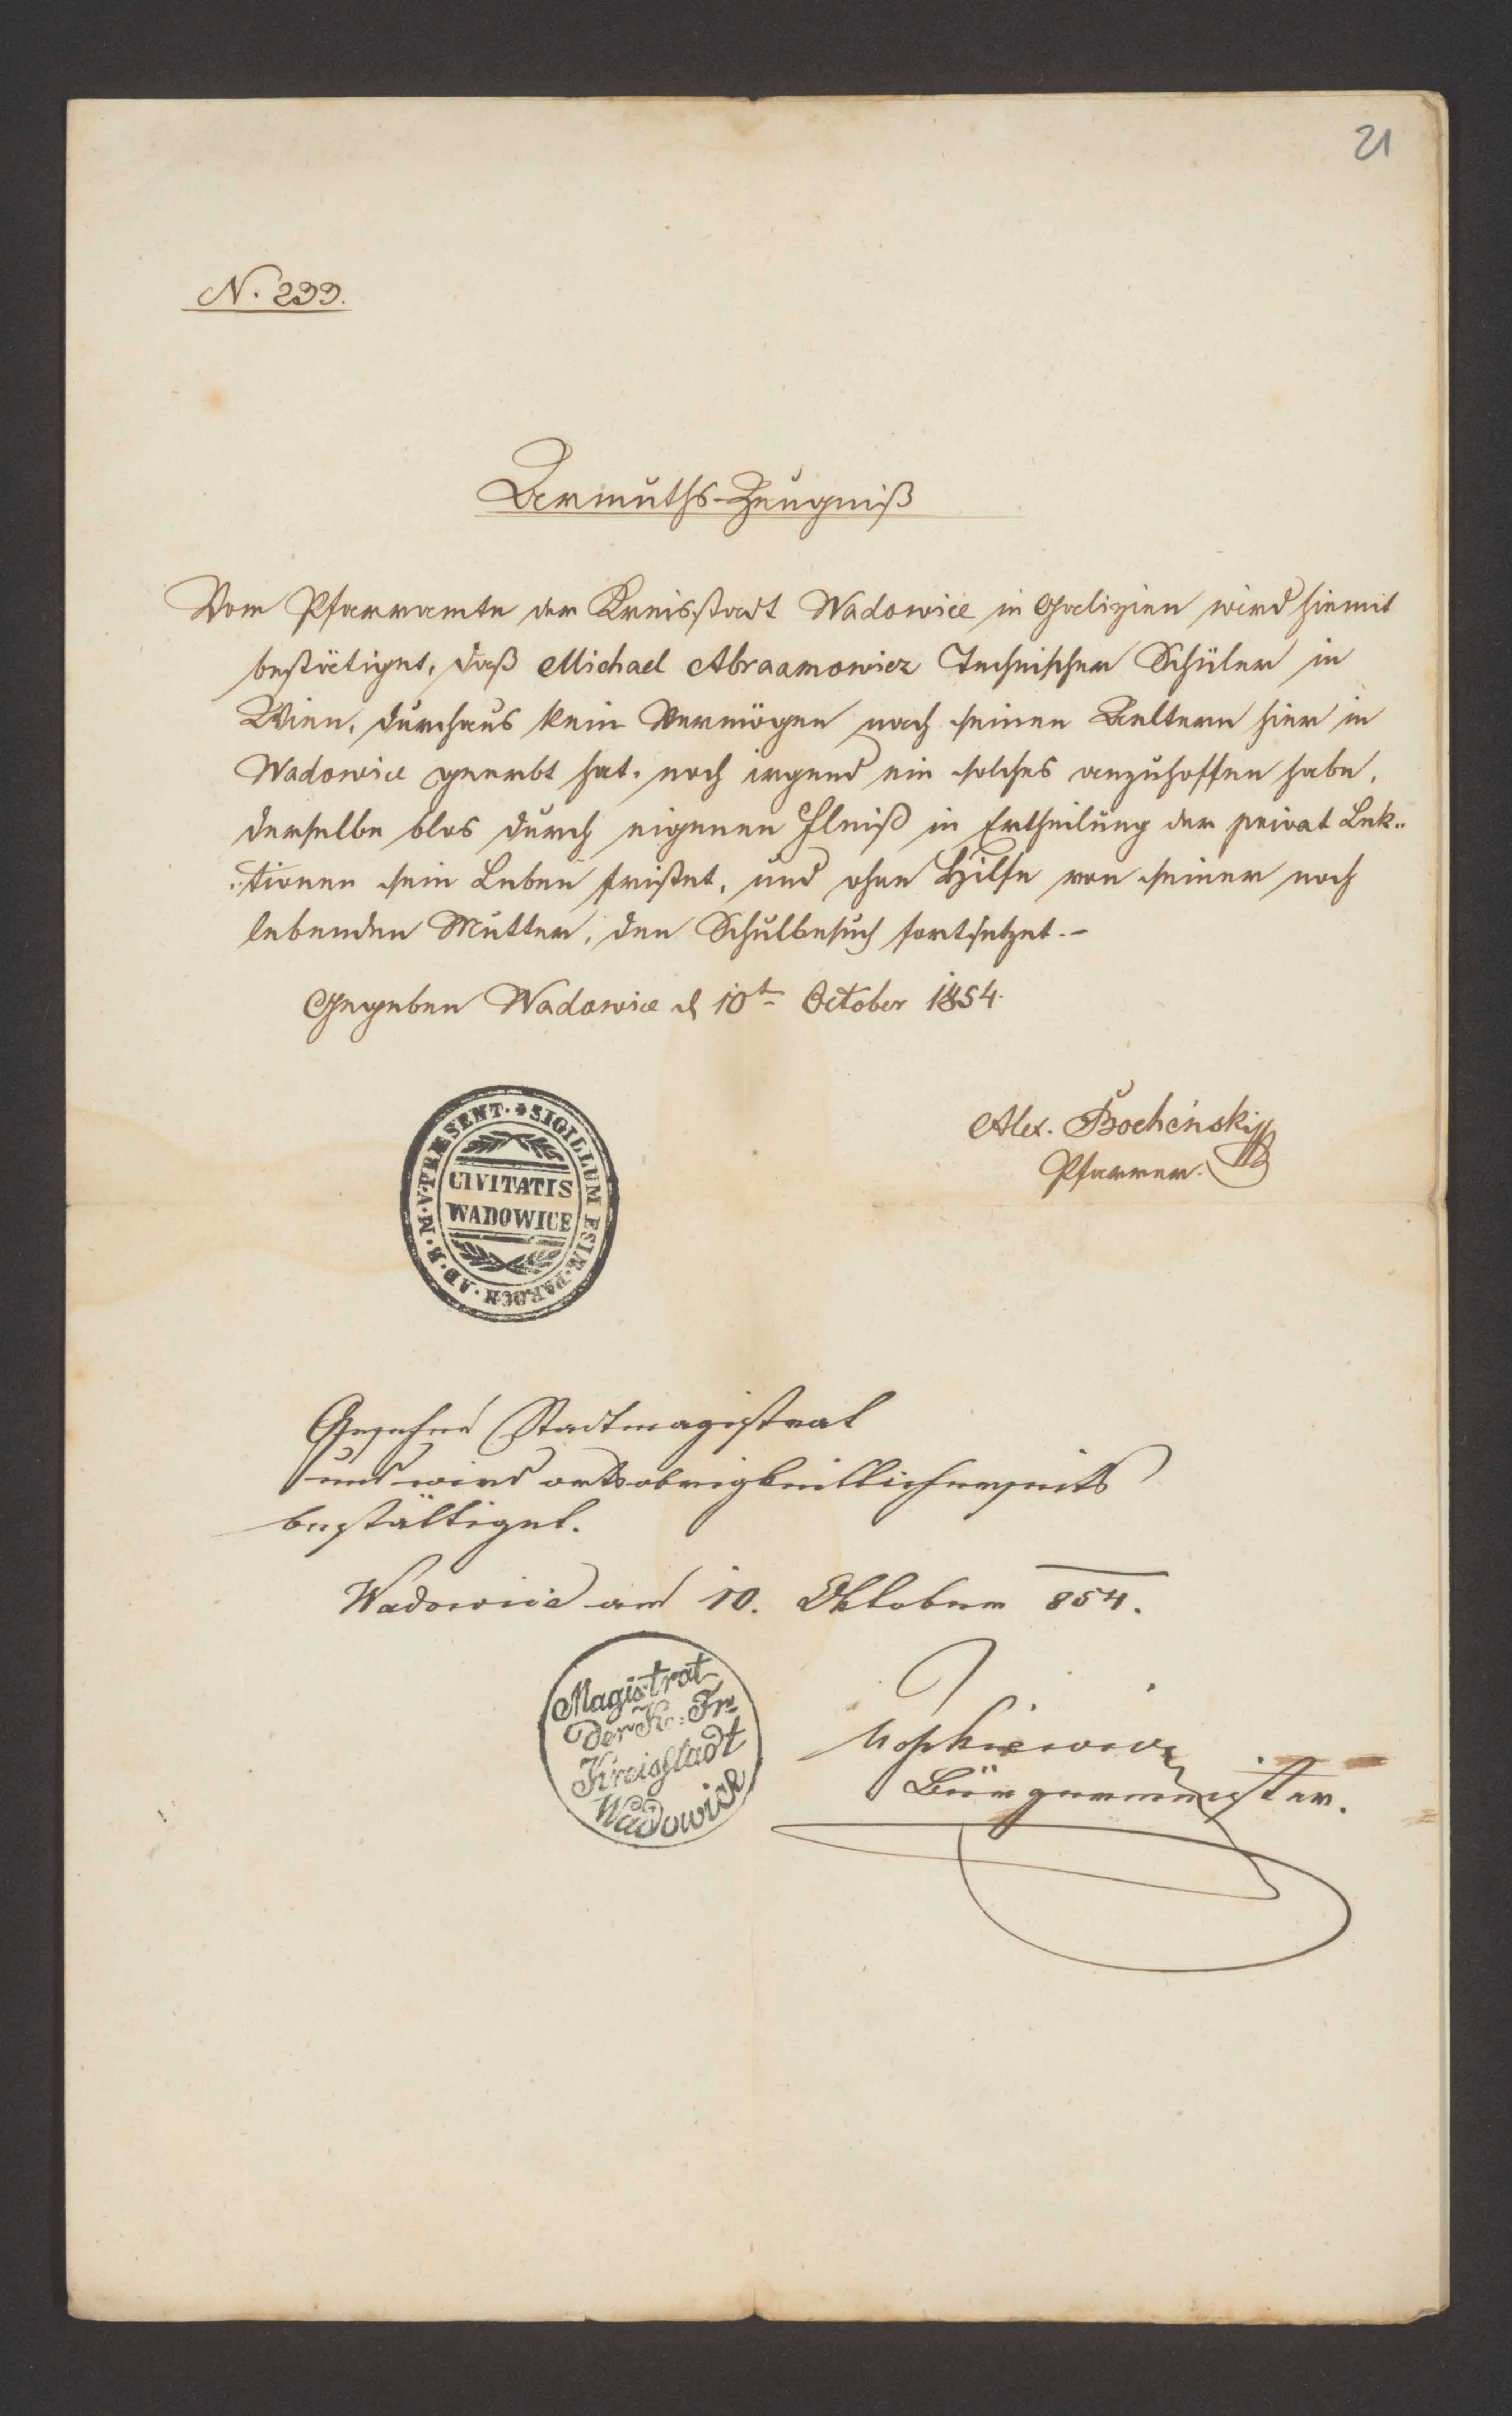 21
N. 233.
Armuths-Zeugniß
Vom Pfarramte der Kreisstadt Wadowice in Galizien wird hiemit
bestätiget, daß Michael Abraamowicz Technischer Schüler in
Wien, durchaus kein Vermögen nach seinen Aeltern hier in
Wadowice geerbt hat, noch irgend ein solches anzuhoffen habe,
derselbe blos durch eigenen Fleiß in Ertheilung der privat Lek-
tionen sein Leben fristet, und ohne Hilfe von seiner noch
lebenden Mutter, den Schulbesuch fortsetzet.-
Gegeben Wadowice d 10t October 1854.
Alex. Bocheński
Pfarrer.
SIGILLUM ESIÆ PAROCH. AD. B. M. V. PRÆSENT.
CIVITATIS
WADOWICE
Gesehen Stadtmagistrat
und wird ortsobrigkeitlicherseits
bestättiget.
Wadowice am 10. Oktober 854.
Magistrat
der Kr. Fr.
Kreisstadt
Wadowice
Bürgermeister.